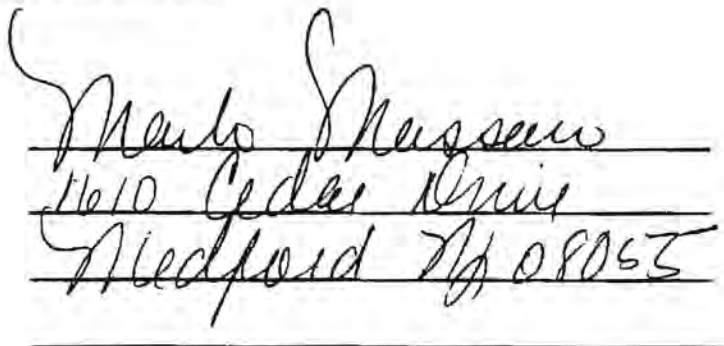 Marlo Massaro
1610 Cedar Drive
Medford NJ 08055